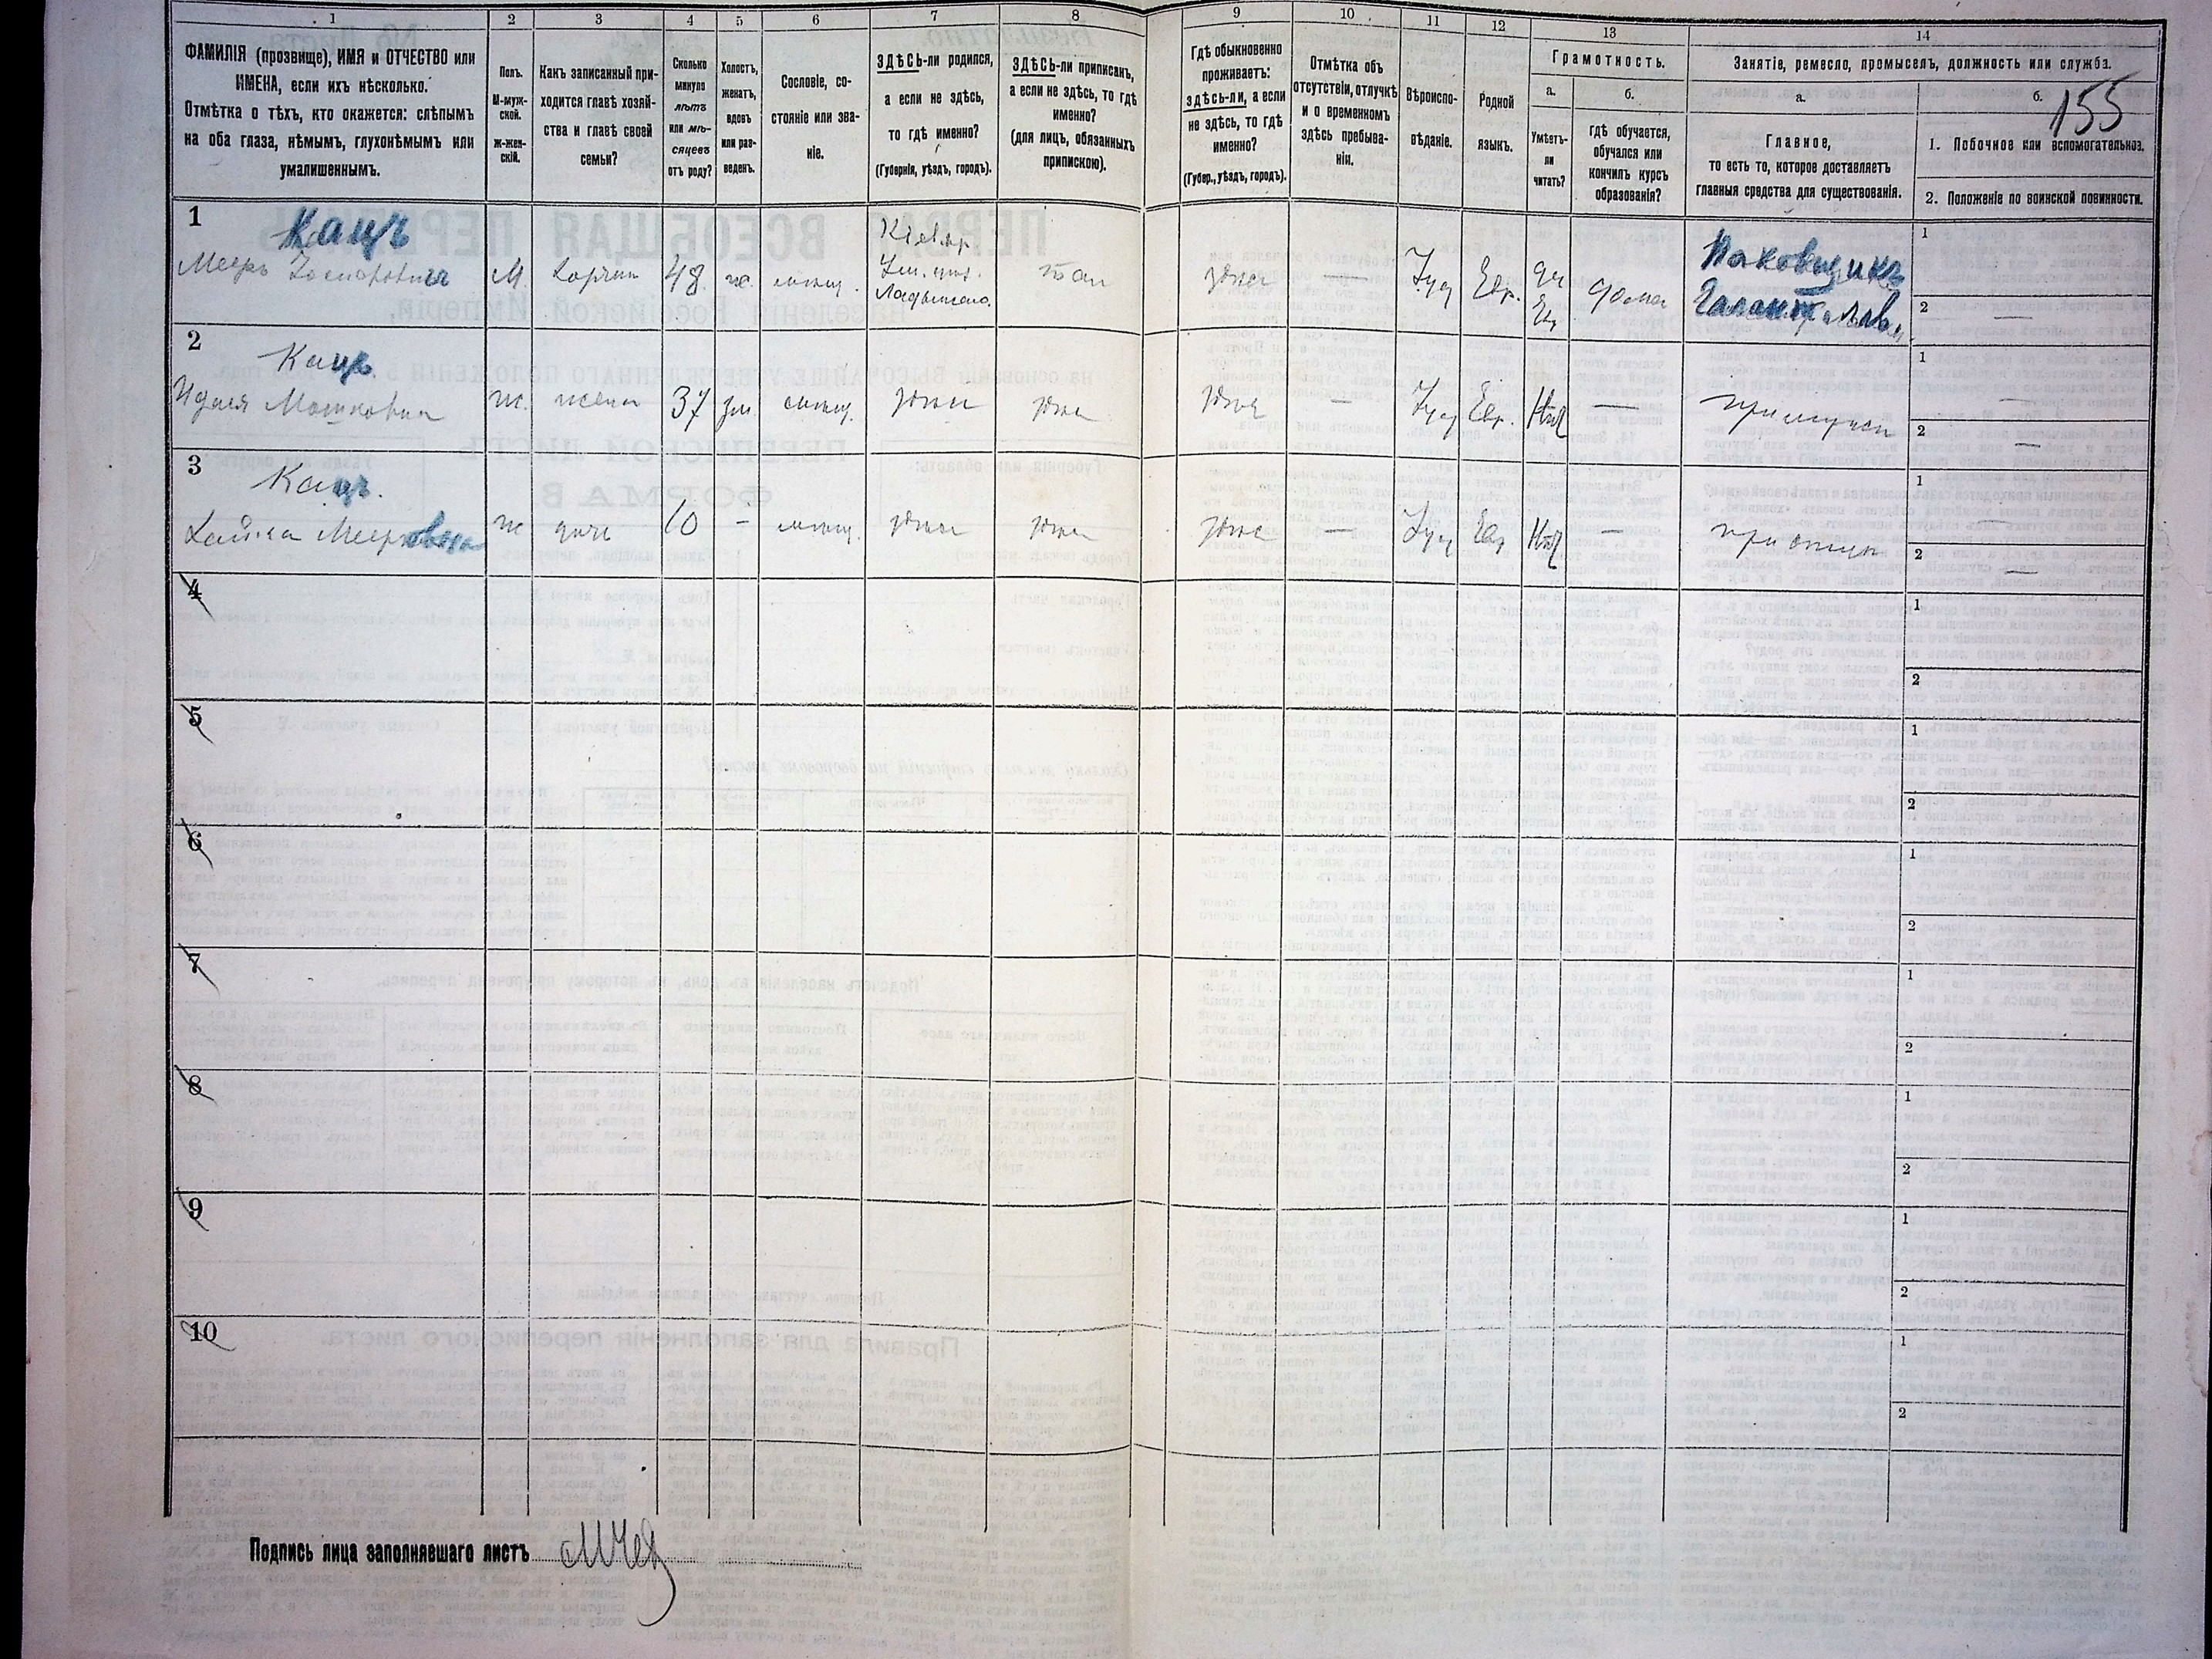 1
2
3
4
5
6
7
8
9
10
11
12
13
14
ФАМИЛІЯ (прозвище), ИМЯ и ОТЧЕСТВО или
ИМЕНА, если ихъ нѣсколько.
Отмѣтка о тѣхъ, кто окажется: слѣпымъ
на оба глаза, нѣмымъ, глухонѣмымъ или
умалишеннымъ.
Полъ.
М-муж-
ской.
ж-жен-
скій.
Какъ записанный при-
ходится главѣ хозяй-
ства и главѣ своей
семьи?
Сколько
минуло
лѣтъ
или мѣ-
сяцевъ
отъ роду?
Холостъ,
женатъ,
вдовъ
или раз-
веденъ.
Сословіе, со-
стояніе или зва-
ніе.
ЗДѢСЬ-ли родился,
а если не здѣсь,
то гдѣ именно?
(Губернія, уѣздъ, городъ).
ЗДѢСЬ-ли приписанъ,
а если не здѣсь, то гдѣ
именно?
(для лицъ, обязанныхъ
припискою).
Гдѣ обыкновенно
проживаетъ:
здѣсь-ли, а если
не здѣсь, то гдѣ
именно?
(Губер., уѣздъ, городъ).
Отмѣтка объ
отсутствіи, отлучкѣ
и о временномъ
здѣсь пребыва-
ніи.
Вѣроиспо-
вѣданіе.
Родной
языкъ.
Грамотность.
а.
Умѣетъ-
ли
читать?
б.
гдѣ обучается,
обучался или
кончилъ курсъ
образованія?
Занятіе, ремесло, промыселъ, должность или служба.
а.
Главное,
то есть то, которое доставляетъ
главныя средства для существованія.
б.
155
1. Побочное или вспомогательное.
2. Положеніе по воинской повинности.
1
Кацъ
Мееръ
М. хозяинъ 48 ж. мѣщ.
Кіев. г.
Ум. уѣз.
там
здѣсь
—
Іуд
Евр.
да
Ев
дома
1
2 —
2
Кацъ
Мошковна
ж. жена 37 зм. мѣщ. здѣсь здѣсь
здѣсь — Іуд Евр. Нѣт — при мужѣ
1 —
2 —
3
Кацъ.
Хайка Мееровна
ж дочь 10 - мѣщ. здѣсь здѣсь
здѣсь — Іуд Евр Нѣт — при отцѣ
1 —
2 —
4
1
2
5
1
2
6
1
2
7
1
2
8
1
2
9
1
2
10
1
2
Подпись лица заполнявшаго листъ